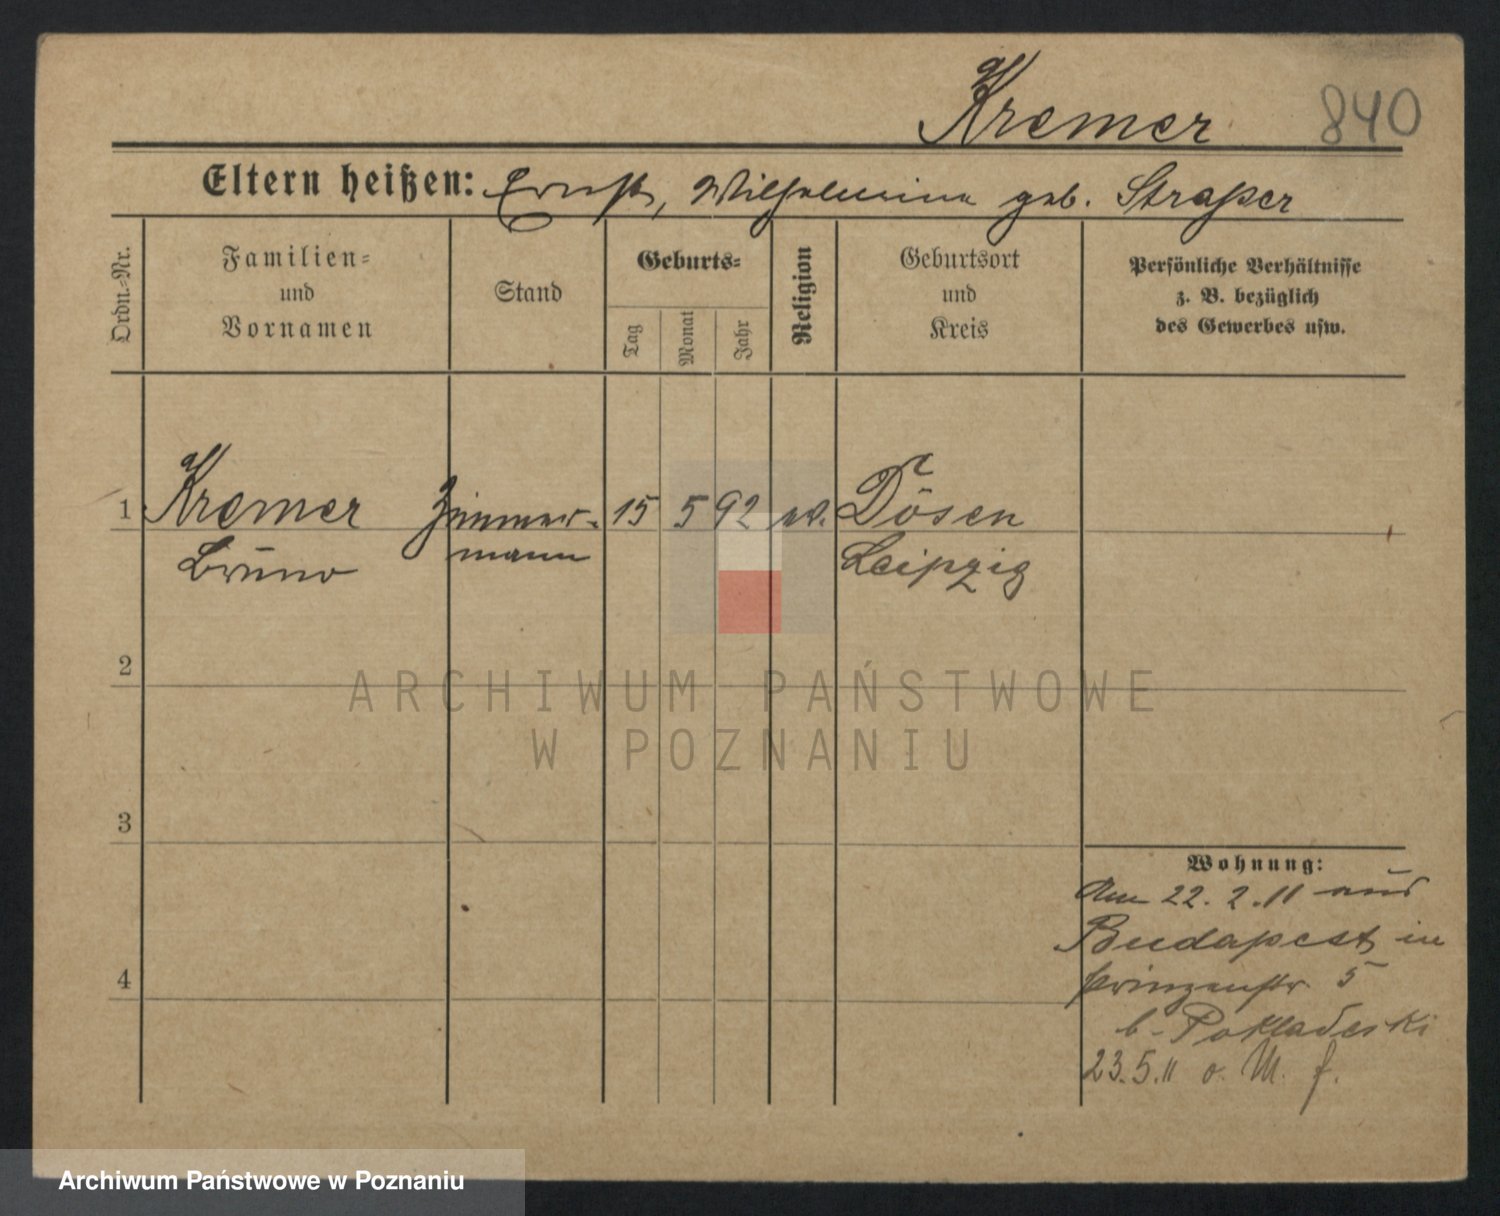 Kremer 840
Eltern heißen: Ernst, Wilhelmine geb. Straßer
Ordn.-Nr.
Familien-
und
Vornamen
Stand
Geburts-
Tag
Monat
Jahr
Religion
Geburtsort
und
Kreis
Persönliche Verhältnisse
z. B. bezüglich
des Gewerbes usw.
1 Kremer Zimmer- 15 5 92 ev. Dösen
Bruno mann Leipzig
2
ARCHIWUM PAŃSTWOWE
W POZNANIU
3
Wohnung:
Am 22. 2. 11 aus
Budapest in
4 Prinzenstr. 5
b. Pokladeski
23.5.11 o. M. f.
Archiwum Państwowe w Poznaniu